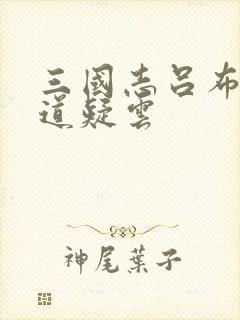 三國志呂布
道疑雲
神尾葉子